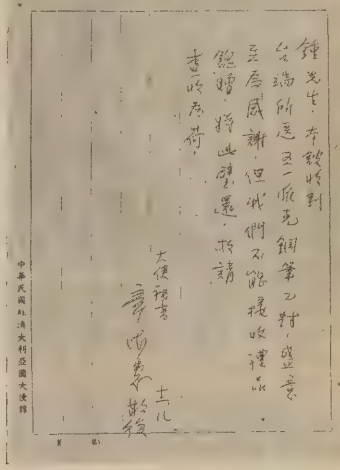 鍾先生：本館收到
台端所惠五一派克鋼筆乙對，盛意
至為感謝，但我們不能接收禮品
餽贈，特此璧還，敬請
查收為荷，
大使秘書
敬復
十一、八
中華民國駐澳大利亞國大使館
第 頁